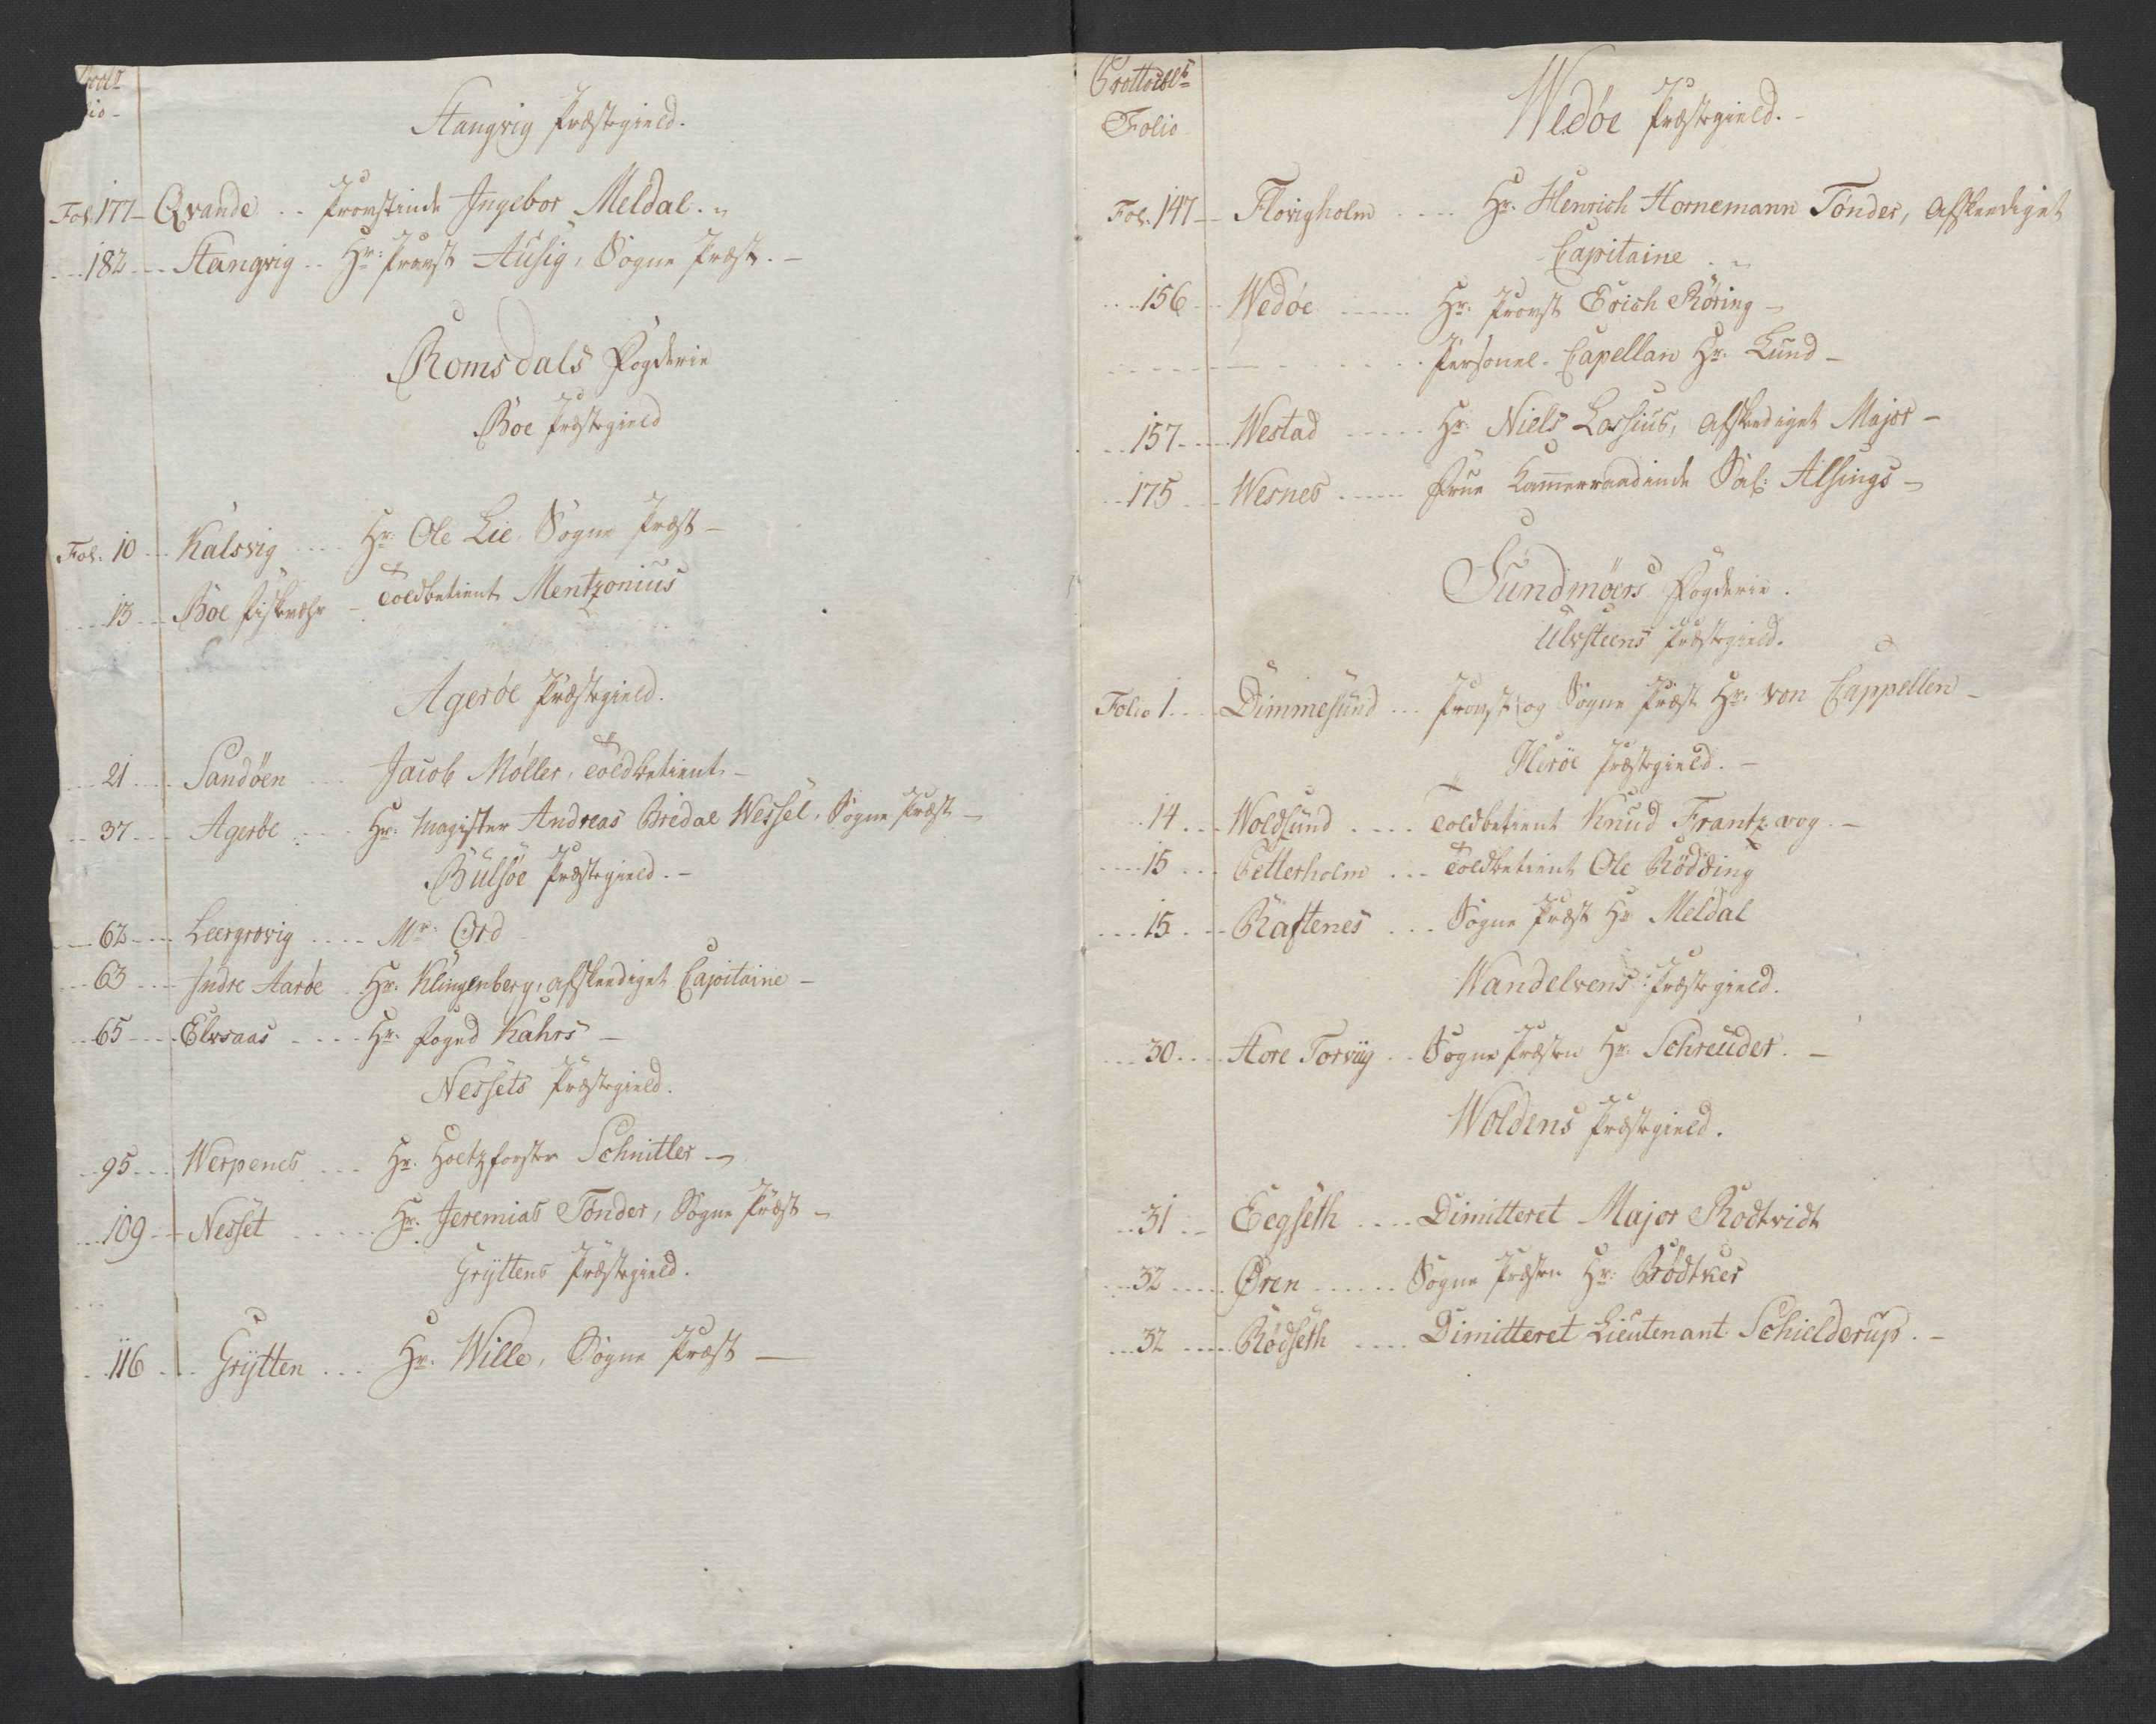 Stangvig Præstegield.
Fol. 177 - Qvande .. Provstinde Ingebor Meldal.
182 - Stangvig .. Hr: Provst Ausig, Sogne Præst. -
Romsdals Fogderie
Boe Præstegield
Fol. 10 - Kalsvig .... Hr: Ole Lie Sogne Præst -
13 - Boe fiskevehr - Toldbetient Mentzonius
Agerøe Præstegield.
21 .... Sandøen .... Jacob Møller, Toldbetient -
37 ... Agerøe .... Hr: Magister Andreas Bredal Wessel, Sogne Præst -
Bulsøe Præstegield. -
62 .... Leergrovig .... Mr: Ord
63 .... Indre Aarøe .. Hr: Klingenberg, afskeediget Capitaine -
65 .... Elvsaas .... Hr: Foged Kahrs -
Nessets Præstegield.
95 ... Werpenes ... Hr: Holtzforster Schnitler -
109 - Nesset .... Hr: Jeremias Tønder, Sogne Præst -
Gryttens Præstegield.
116 ... Grytten ... Hr. Wille, Sogne Præst -
Folio
Wedøe Præstegield. -
Fol. 147 - Flovigholm .... Hr. Henrich Hornemann Tønder, afskeediget
Capitaine
156 - Wedøe ..... Hr: Provst Erich Røring -
Personel-Capellan Hr: Lund -
157 .... Westad ..... Hr: Niels Lossius, afskeediget Major -
175 - Wesnes ..... Frue Kammerraadinde Sal: Alsings -
Sundmøers Fogderie.
Ulvsteens Præstegield.
Folio 1 .... Dimmesund ... Provst og Sogne Præst Hr: von Cappellen -
Herøe Præstegield. -
14 ... Woldsund .... Toldbetient Knud Frantzvog. -
15 ... Petterholm ... Toldbetient Ole Rødding
15 ... Raftenes ... Sogne Præst Hr Meldal
Wandelvens Præstegield.
30 .... Store Torvig .. Sogne Præsten Hr: Schreuder. -
Woldens Præstegield.
31 .. Eegseth .... Dimitteret Major Rodtvidt
32 .... Øren ...... Sogne Præsten Hr: Brødtker
32 .... Rødseth .... Dimitteret Lieutenant Schielderup. -